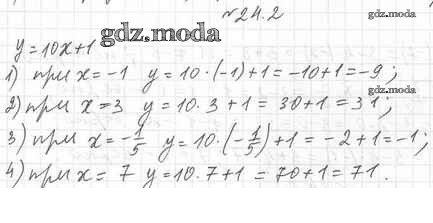 №24.2
gdz.moda
y=10x+1 gdz.moda
1) при x=-1 y=10·(-1)+1=-10+1=-9;
2) при x=3 y=10·3+1=30+1=31;
3) при x=-1/5 y=10·(-1/5)+1=-2+1=-1;
4) при x=7 y=10·7+1=70+1=71.
gdz.moda
gdz.moda